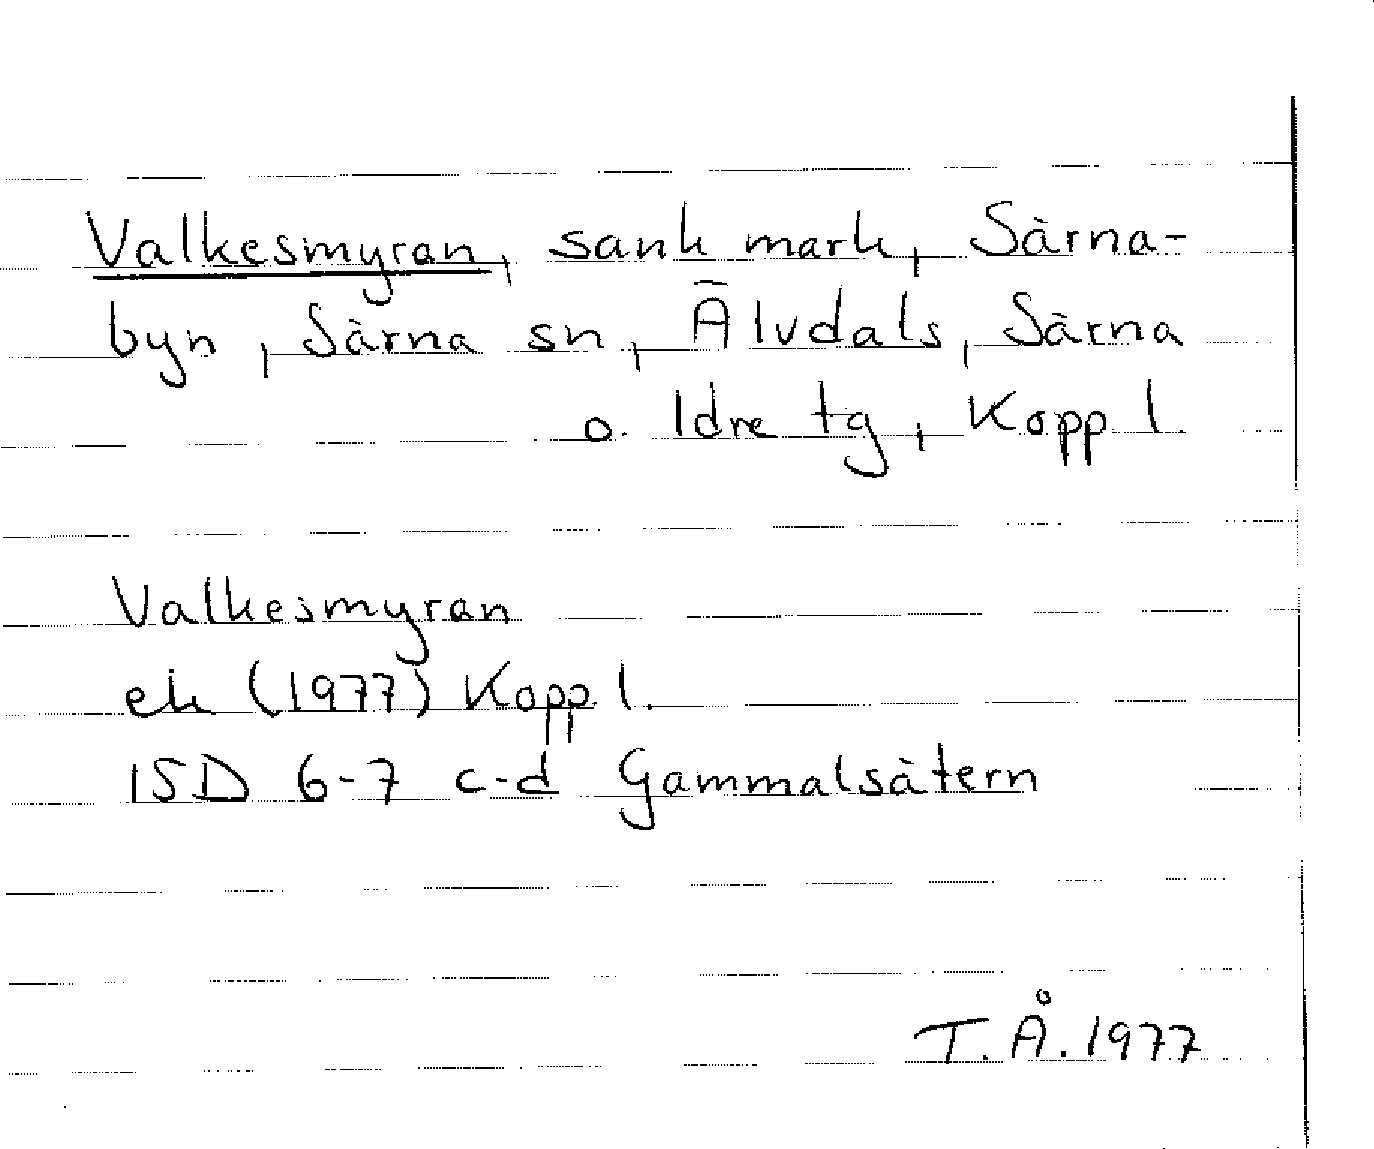 Valkesmyran, sank mark, Särna-
byn, Särna sn, Älvdals, Särna
o. Idre tg, Kopp l.
Valkesmyran
ek (1977) Kopp l.
15D 6-7 c-d Gammalsätern
T.Å. 1977